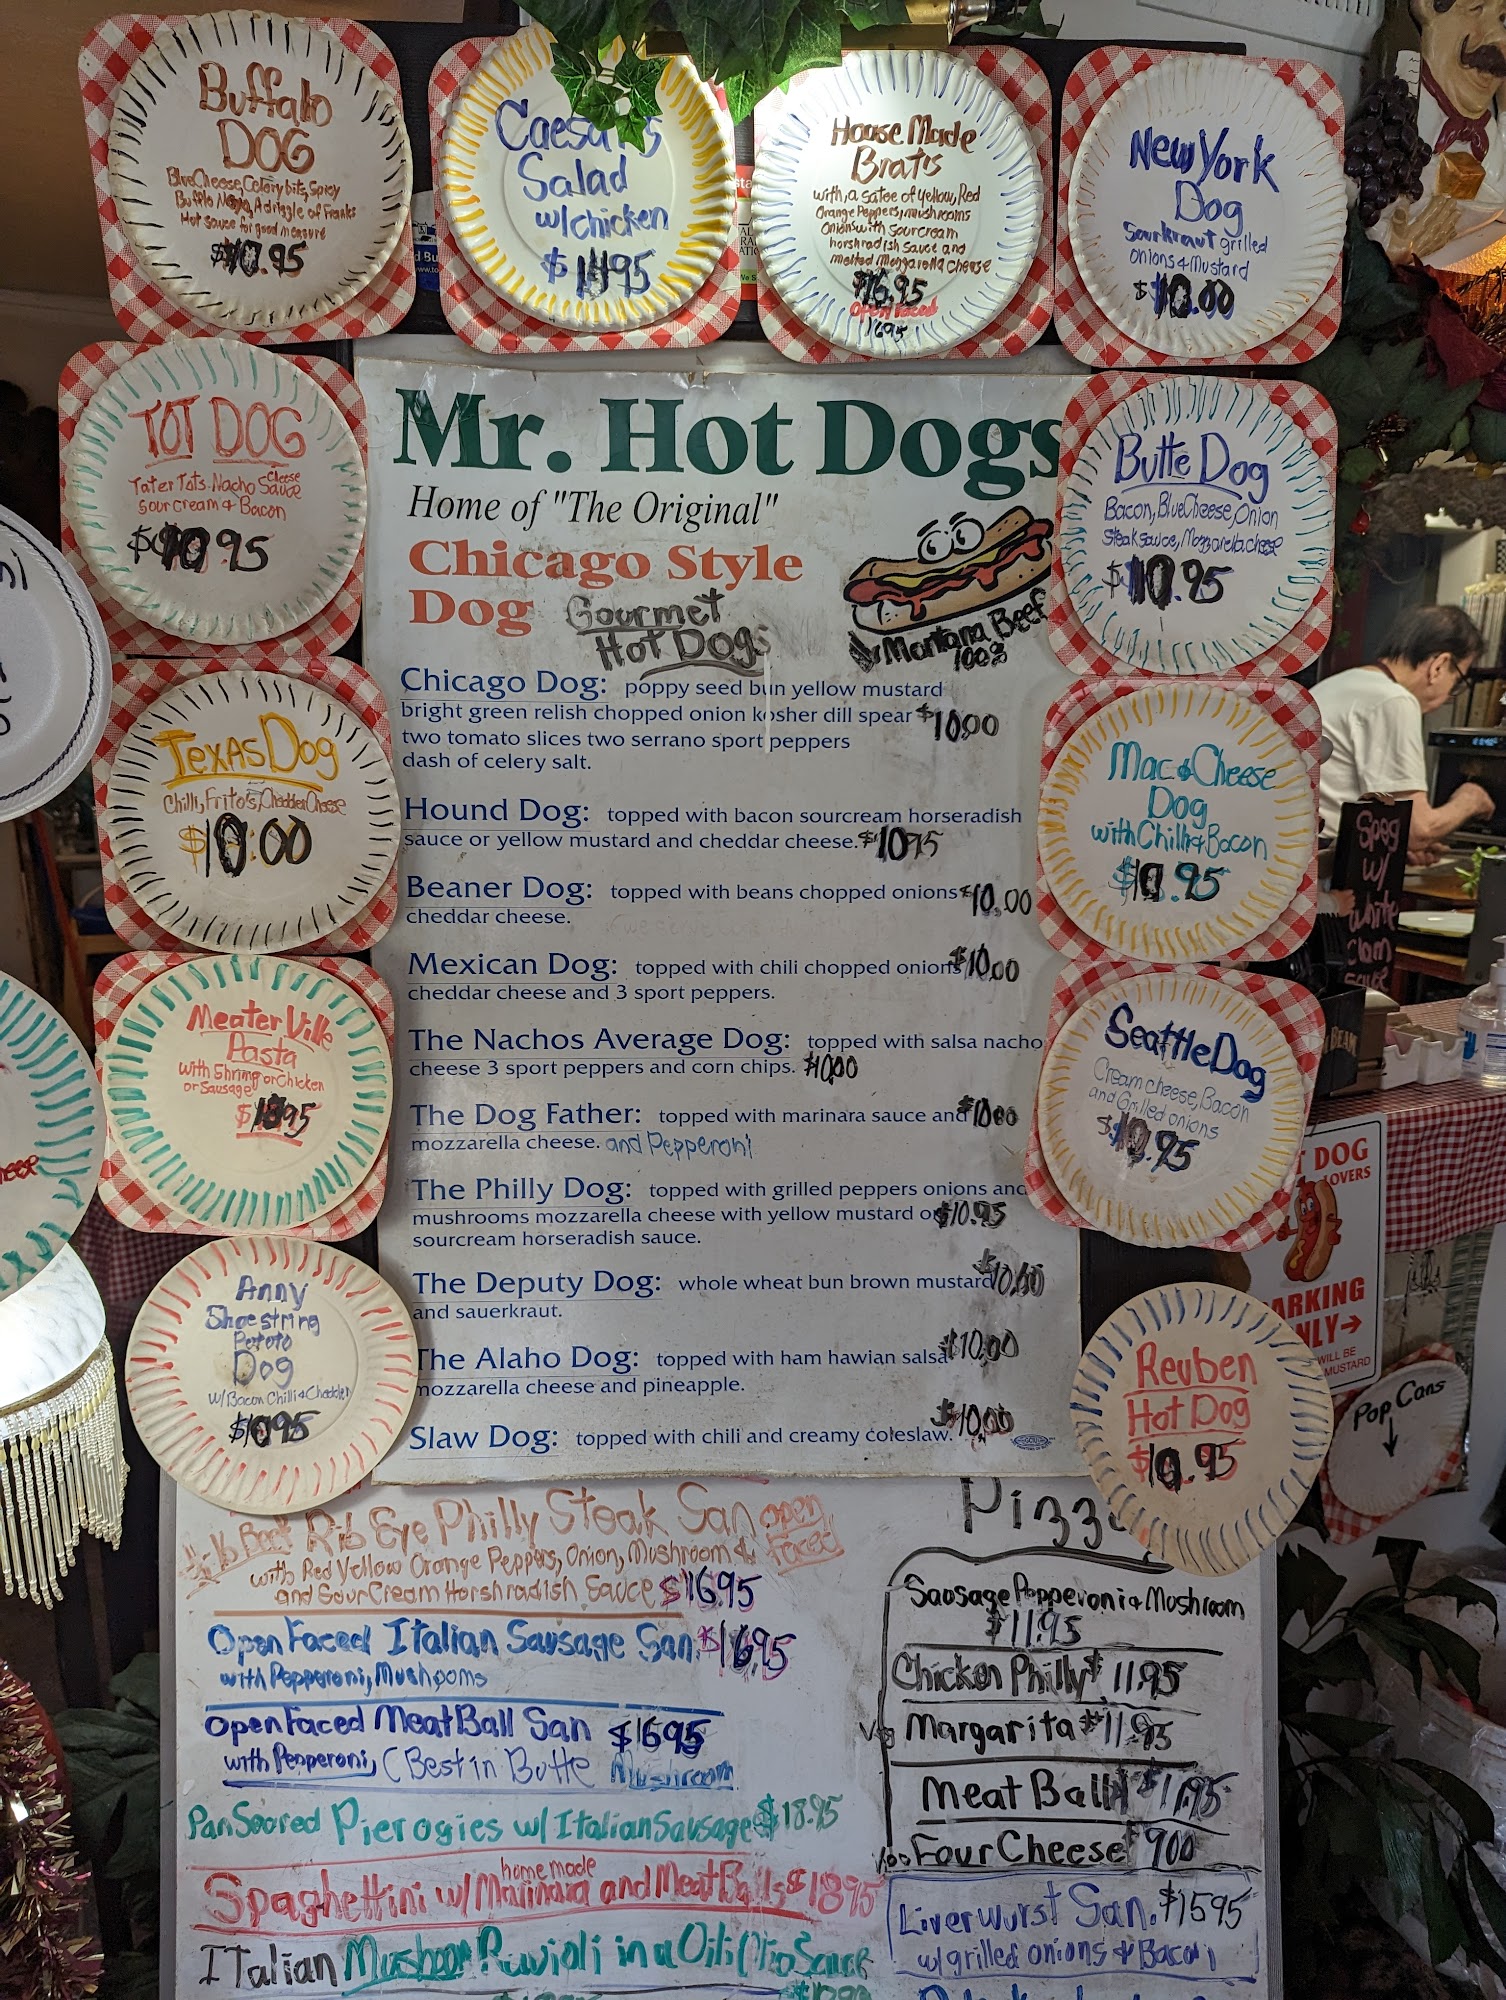 Buffalo
DOG
BlueCheese, Celery bits, Spicy
Bufflo Mayo, A drizzle of Franks
Hot sauce for good measure
$10.95
Caesar's
Salad
w/chicken
$1495
House Made
Brats
with, a satee of Yellow, Red
Orange Peppers, mushrooms
Onions with Sourcream
horshradish sauce and
melted Mongarella cheese
$16.95
Open Faced
1695
New York
Dog
Sourkraut grilled
onions & Mustard
$10.00
TOT DOG
Tater Tots, Nacho Cheese Sauce
Sour cream & Bacon
$10 95
Texas Dog
Chilli, Frito's, Chedder Cheese
$10.00
Meater Ville
Pasta
with Shrimp or Chicken
or Sausage
$1895
Anny
Shoestring
Pototo
Dog
w/Bacon Chilli & Chedder
$1095
Mr. Hot Dogs
Home of "The Original"
Chicago Style
Dog
Gourmet
Hot Dogs
Montana Beef
100%
Chicago Dog: poppy seed bun yellow mustard
bright green relish chopped onion kosher dill spear $10.00
two tomato slices two serrano sport peppers
dash of celery salt.
Hound Dog: topped with bacon sourcream horseradish
sauce or yellow mustard and cheddar cheese. $10.95
Beaner Dog: topped with beans chopped onions $10.00
cheddar cheese.
Mexican Dog: topped with chili chopped onions $10.00
cheddar cheese and 3 sport peppers.
The Nachos Average Dog: topped with salsa nacho
cheese 3 sport peppers and corn chips. $10.00
The Dog Father: topped with marinara sauce and $10.00
mozzarella cheese. and Pepperoni
The Philly Dog: topped with grilled peppers onions and
mushrooms mozzarella cheese with yellow mustard or $10.95
sourcream horseradish sauce.
The Deputy Dog: whole wheat bun brown mustard $10.00
and sauerkraut.
The Alaho Dog: topped with ham hawian salsa $10.00
mozzarella cheese and pineapple.
Slaw Dog: topped with chili and creamy coleslaw. $10.00
Butte Dog
Bacon, BlueCheese, Onion
Steak sauce, Mozzarella cheese
$10.95
Mac & Cheese
Dog
with Chilli & Bacon
$10.95
Seattle Dog
Cream cheese, Bacon
and Grilled onions
$10.95
Reuben
Hot Dog
$10.95
Spag
w/
white
clam
sauce
BEAM
T DOG
LOVERS
ARKING
NLY→
WILL BE
MUSTARD
Pop Cans
Beef Rib Eye Philly Steak San open
Faced
with Red Yellow Orange Peppers, Onion, Mushroom &
and Sour Cream Horshradish Sauce $16.95
Open Faced Italian Sausage San. $16.95
with Pepperoni, Mushooms
Open Faced MeatBall San $1695
with Pepperoni, (Best in Butte Mushroom
Pan Seared Pierogies w/ Italian Sausage $18.95
home made
Spaghettini w/ Marinara and MeatBalls $1895
Italian Mushroom Ravioli in a Oili Olio Sauce
Pizza
Sausage Pepperoni & Mushroom
$11.95
Chicken Philly $11.95
Margarita $11.95
Meat Ball $11.95
Four Cheese 900
Liverwurst San. $1595
w/grilled onions & Bacon